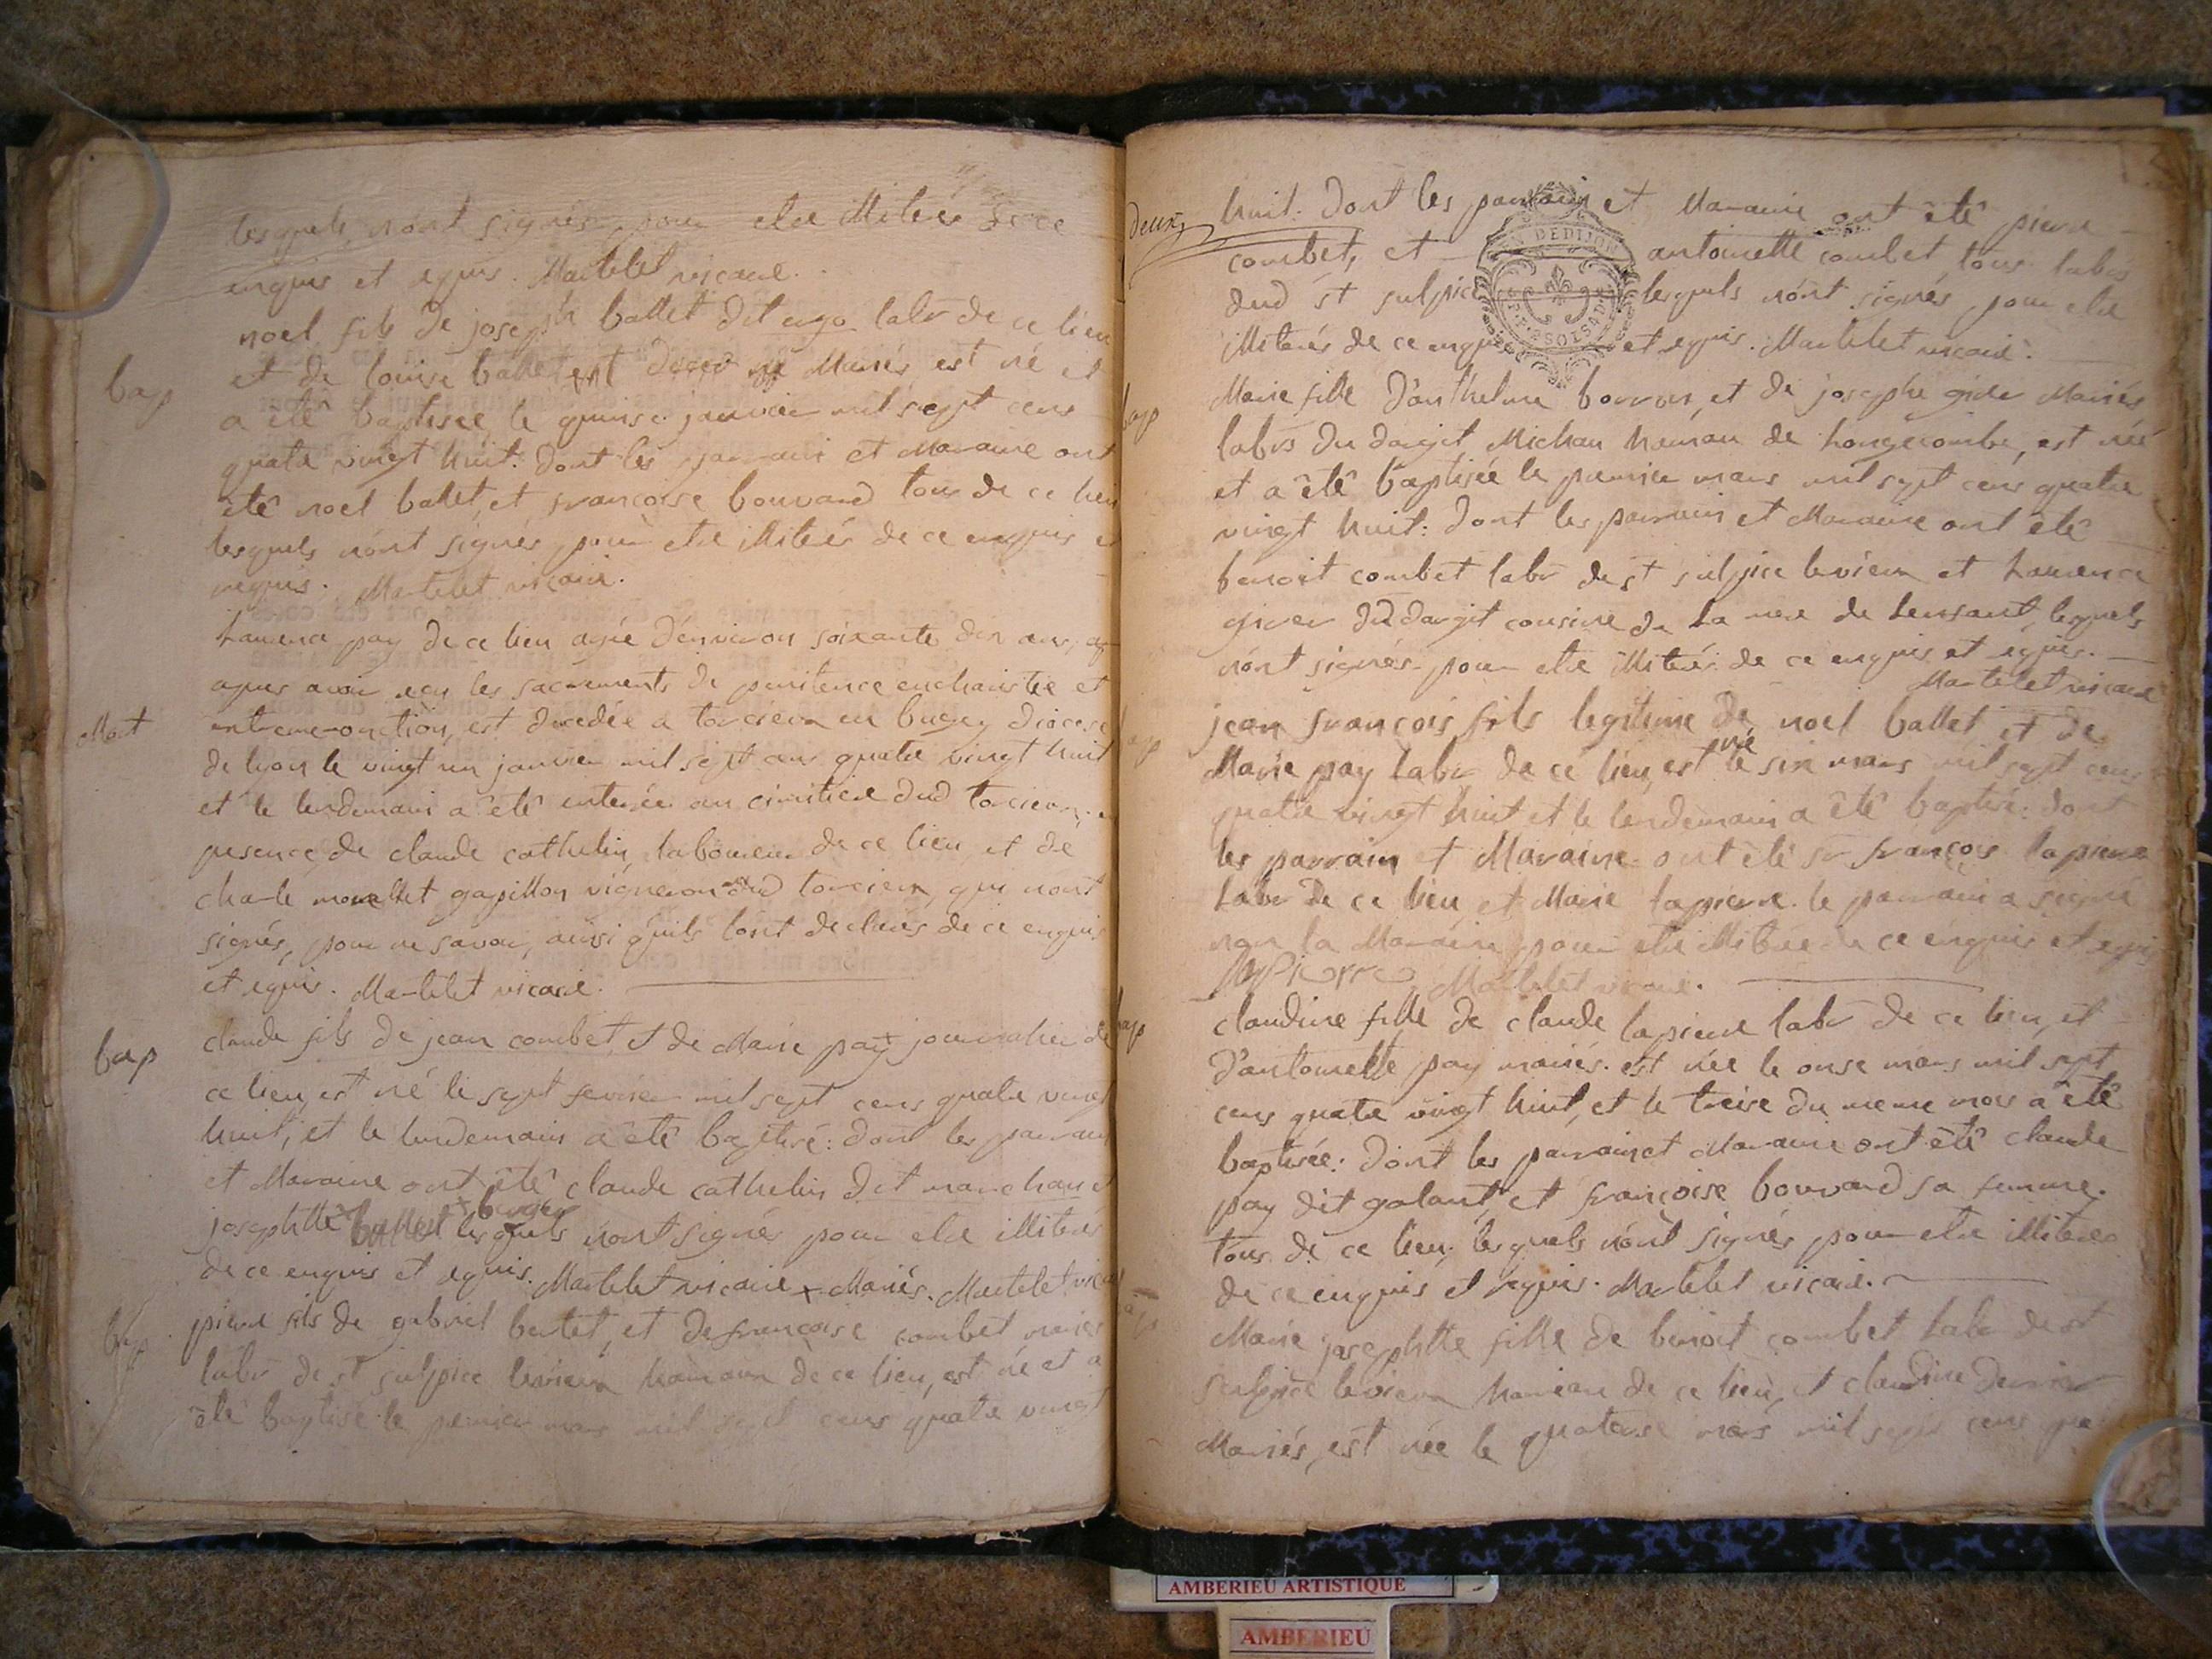 lesquels n'ont signés pour etre illiterés de ce
enquis et requis. Martelet vicaire.
noel fils de joseph ballet dit labr de ce lieu
bap
et de louise ballet mariés est né et
a été baptisée le quinse janvier mil sept cens
quatre vingt huit. dont les parrain et Maraine ont
été noel ballet, et françoise bouvard tous de ce lieu
lesquels n'ont signés pour etre illiterés de ce enquis et
requis. Martelet vicaire.
Laurence pay de ce lieu agée d'environ soixante dix ans,
apres avoir reçu les sacrements de penitence eucharistie et
Mort
extreme-onction, est decedée a torcieu en bugey diocese
de lyon le vingt un janvier mil sept cens quatre vingt huit
et le lendemain a été enterrée au cimitiere dud torcieu. en
presence de claude cathelin laboureur de ce lieu et de
charle gapillon vigneron dud torcieu, qui n'ont
signés, pour ne savoir, ainsi qu'ils l'ont declarés de ce enquis
et requis. Martelet vicaire.
bap
claude fils de jean combet et de Marie pay journalier de
ce lieu, est né le sept fevrier mil sept cens quatre vingt
huit, et le lendemain a été baptisé: dont les parrain
et Maraine ont été claude cathelin dit marechan et
josephtte ballet + berger lesquels n'ont signés pour etre illiterés
de ce enquis et requis. Martelet vicaire + Mariés. Martelet vicaire
bap
pierre fils de gabriel bertet, et de françoise combet mariés
labr de st sulpice levieux hameau de ce lieu, est né et a
été baptisé le premier mars mil sept cens quatre vingt
deux,
huit. dont les parrain et Maraine ont été pierre
combet, et antoinette combet tous labrs
dud st sulpice lesquels n'ont signés pour etre
illiterés de ce enquis et requis. Martelet vicaire.
bap
Marie fille d'anthelme borron, et de josephte gider Mariés
labrs du dargit Michau hameau de Longecombe, est née
et a été baptisée le premier mars mil sept cens quatre
vingt huit: dont les parrain et Maraine ont été
benoit combet labr de st sulpice levieux et Laurence
du dargit cousine de La mere de Lenfant, lesquels
n'ont signés pour etre illiterés de ce enquis et requis.
Martelet vicaire
bap
jean françois fils legitime de noel ballet et de
Marie pay labr de ce lieu, est né le six mars mil sept cens
quatre vingt huit et le lendemain a été baptisé: dont
les parrain et Maraine ont été sr françois lapierre
labr de ce lieu, et Marie lapierre. le parrain a signé
non la Maraine pour etre illiterée de ce enquis et requis
lapierre Martelet vicaire.
bap
claudine fille de claude lapierre labr de ce lieu, et
d'antoinette pay mariés. est née le onse mars mil sept
cens quatre vingt huit, et le treise du meme mois a été
baptisée: dont les parrain et Maraine ont été claude
pay dit galant, et françoise bouvard sa femme.
tous de ce lieu, lesquels n'ont signés pour etre illiterés
de ce enquis et requis. Martelet vicaire.
bap
Marie josephtte fille de benoit combet labr de st
sulpice levieux hameau de ce lieu, et claudine
Mariés, est née le quatorse mars mil sept cens qua
EN DEDIJON
AMBERIEU ARTISTIQUE
AMBERIEU